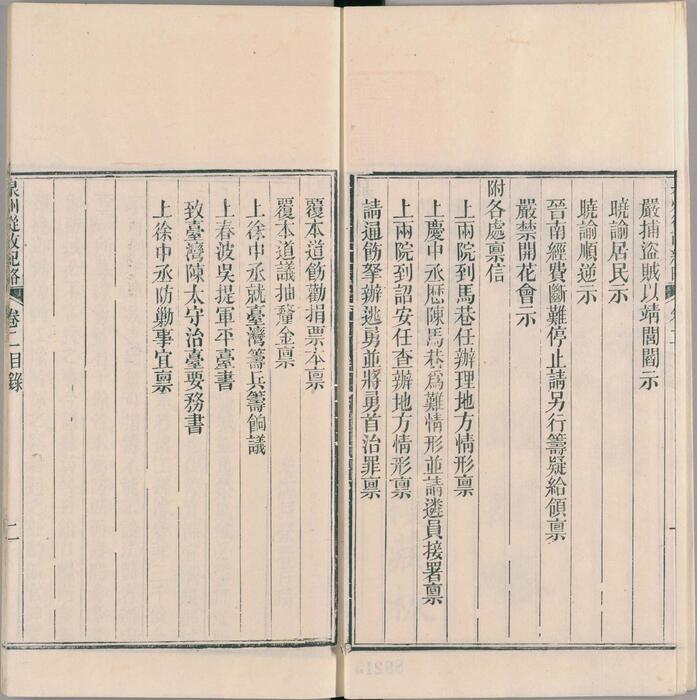 嚴捕盜賊以靖閭閻示
曉諭居民示
曉諭順逆示
晉南經費斷難停止請另行籌疑給領禀
嚴禁開花會示
附各處禀信
上兩院到馬巷任辦理地方情形禀
上慶中丞歴陳馬巷爲難情形並請遴員接署禀
上兩院到詔安任查辦地方情形禀
請通飭拏辦逃勇並將勇首治罪禀
覆本道飭勸捐票本禀
覆本道議抽釐金禀
上徐中丞就臺灣籌兵籌餉議
上春波吳提軍平臺書
致臺灣陳太守治臺要務書
上徐中丞防勦事宜禀
泉州從政紀略
卷二目錄
二